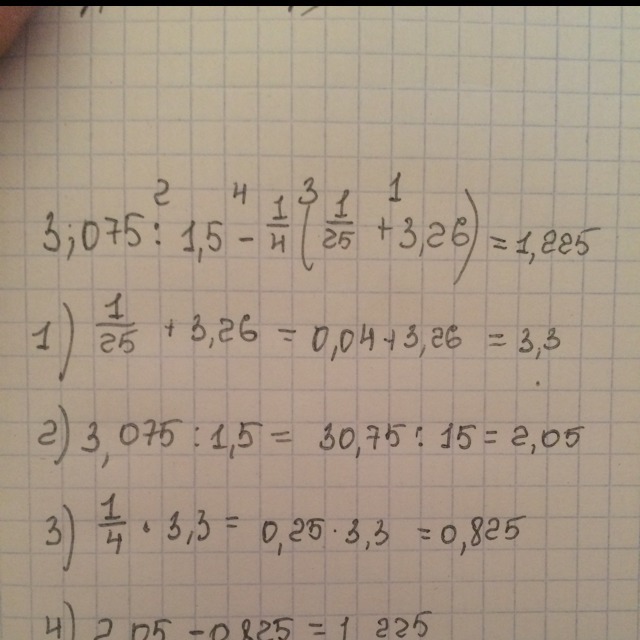 2 4 3 1
3,075 : 1,5 - 1/4 (1/25 + 3,26) = 1,225
1) 1/25 + 3,26 = 0,04 + 3,26 = 3,3
2) 3,075 : 1,5 = 30,75 : 15 = 2,05
3) 1/4 · 3,3 = 0,25 · 3,3 = 0,825
4) 2,05 - 0,825 = 1,225